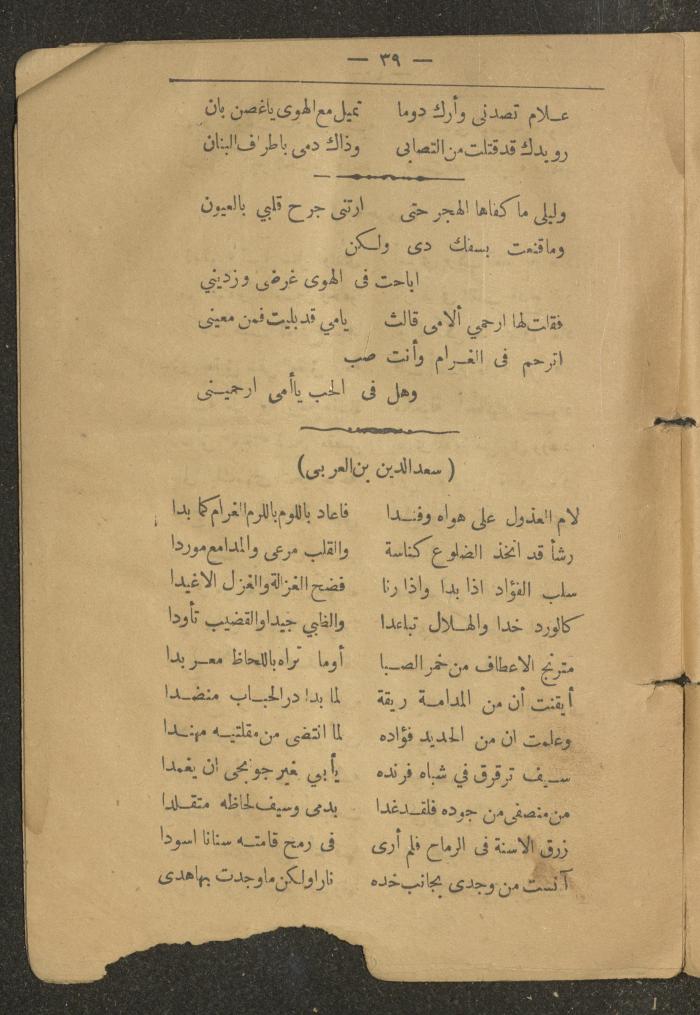 — ٣٩ —
علام تصدنى وأرك دوما تميل مع الهوى ياغصن بان
رويدك قد قتلت من التصابى وذاك دمى باطراف البنان
وليلى ما كفاها الهجر حتى ارتنى جرح قلبي بالعيون
وما قنعت بسفك دى ولكن
اباحت فى الهوى غرضى وزديني
فقلت لها ارحمي ألامى قالت يامي قد بليت فمن معينى
اترحم فى الغرام وأنت صب
وهل فى الحب ياأمى ارحمينى
( سعد الدين بن العربى )
لام العذول على هواه وفندا فاعاد باللوم باللرم الغرام كما بدا
رشأ قد اتخذ الضلوع كناسة والقلب مرعى والمدامع موردا
سلب الفؤاد اذا بدا واذا رنا فضح الغزالة والغزل الاغيدا
كالورد خدا والهلال تباعدا والظبي جيدا والقضيب تأودا
مترنح الاعطاف من خمر الصبا أوما تراه باللحاظ معربدا
أيقنت أن من المدامة ريقة لما بدا در الحباب منضدا
وعلمت ان من الحديد فؤاده لما انتضى من مقلتيه مهندا
سيف ترقرق في شباه فرنده يأبي غير جوبحى ان يغمدا
من منصفى من جوده فلقد غدا بدمى وسيف لحاظه متقلدا
زرق الاسنة فى الرماح فلم أرى فى رمح قامته سنانا اسودا
آنست من وجدى بجانب خده نارا ولكن ما وجدت بها هدى